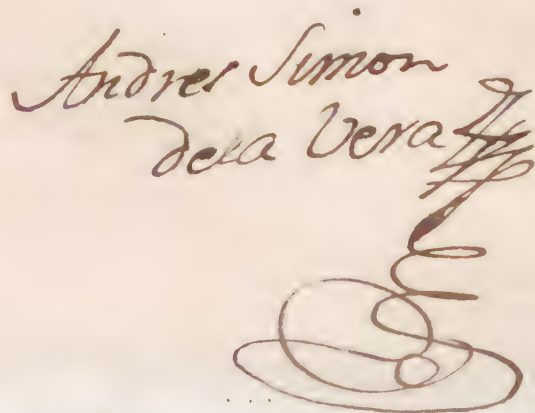 Andres Simon
dela Vera